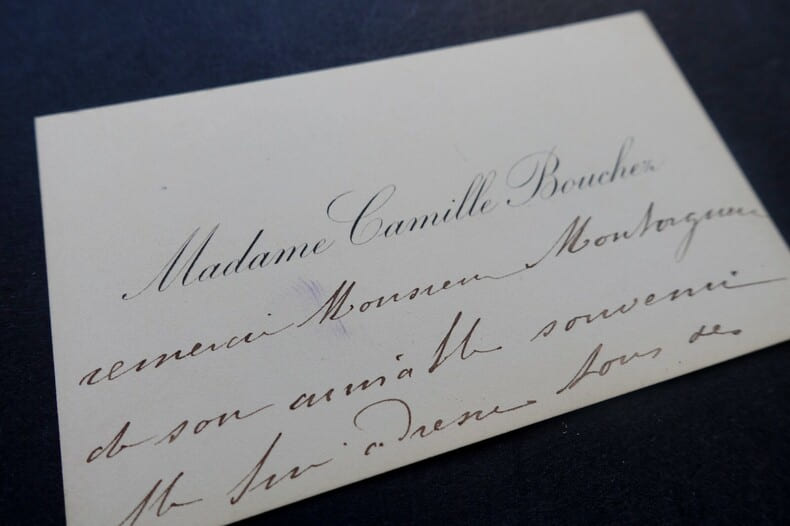 Madame Camille Bouchez
remercie Monsieur Montorgueil
de son aimable souvenir
Elle lui adresse tous ses